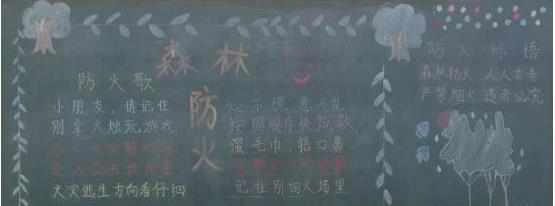 森林
防火
防火歌
小朋友，请记住
别拿火烛玩游戏
火灾逃生方向看仔细
心不慌，意不乱
按照顺序快疏散
湿毛巾，捂口鼻
记住别回火场里
防火标语
森林防火，人人有责
严禁烟火，违者必究